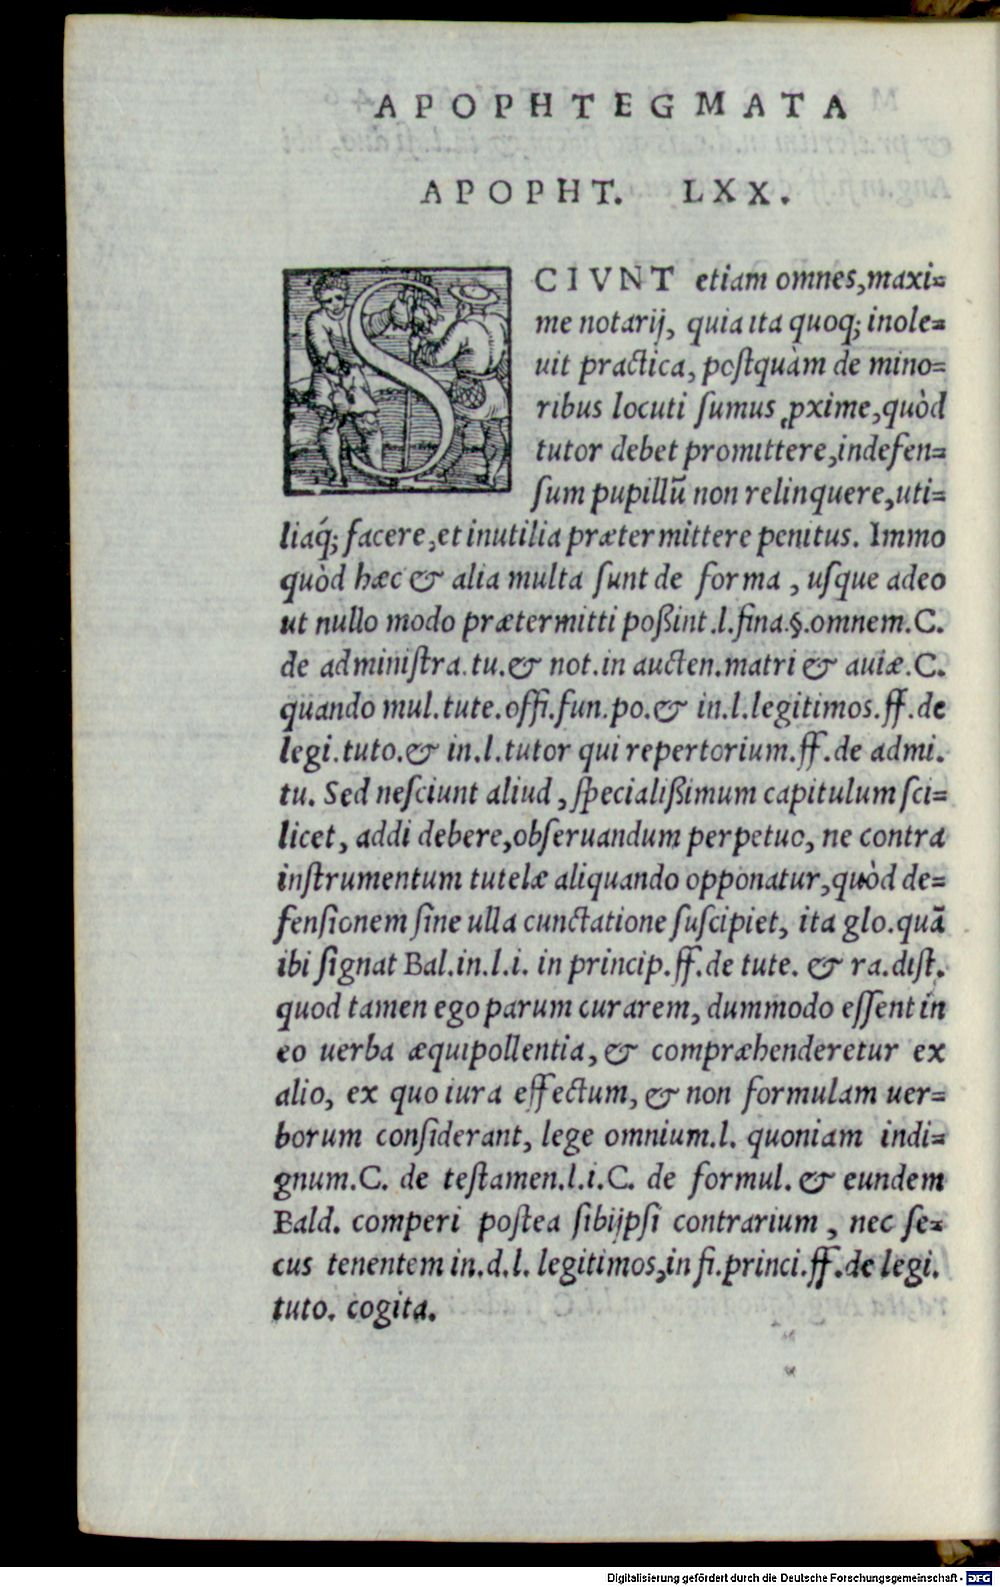 APOPHTEGMATA
APOPHT. LXX.
SCIVNT etiam omnes, maxi=
me notarij, quia ita quoq; inole=
uit practica, postquàm de mino=
ribus locuti sumus ꝓxime, quòd
tutor debet promittere, indefen=
sum pupillū non relinquere, uti=
liaq́; facere, et inutilia prætermittere penitus. Immo
quòd hæc & alia multa sunt de forma, usque adeo
ut nullo modo prætermitti poßint .l.fina.§.omnem.C.
de administra.tu.& not.in aucten.matri & auiæ.C.
quando mul.tute.offi.fun.po.& in.l.legitimos.ff.de
legi.tuto.& in.l.tutor qui repertorium.ff.de admi.
tu. Sed nesciunt aliud, specialißimum capitulum sci=
licet, addi debere, obseruandum perpetuo, ne contra
instrumentum tutelæ aliquando opponatur, quòd de=
fensionem sine ulla cunctatione suscipiet, ita glo.quā
ibi signat Bal.in.l.i. in princip.ff.de tute. & ra.dist.
quod tamen ego parum curarem, dummodo essent in
eo uerba æquipollentia, & compræhenderetur ex
alio, ex quo iura effectum, & non formulam uer=
borum considerant, lege omnium.l. quoniam indi=
gnum.C. de testamen.l.i.C. de formul. & eundem
Bald. comperi postea sibijpsi contrarium, nec se=
cus tenentem in.d.l. legitimos, in fi.princi.ff.de legi.
tuto. cogita.
Digitalisierung gefördert durch die Deutsche Forschungsgemeinschaft - DFG